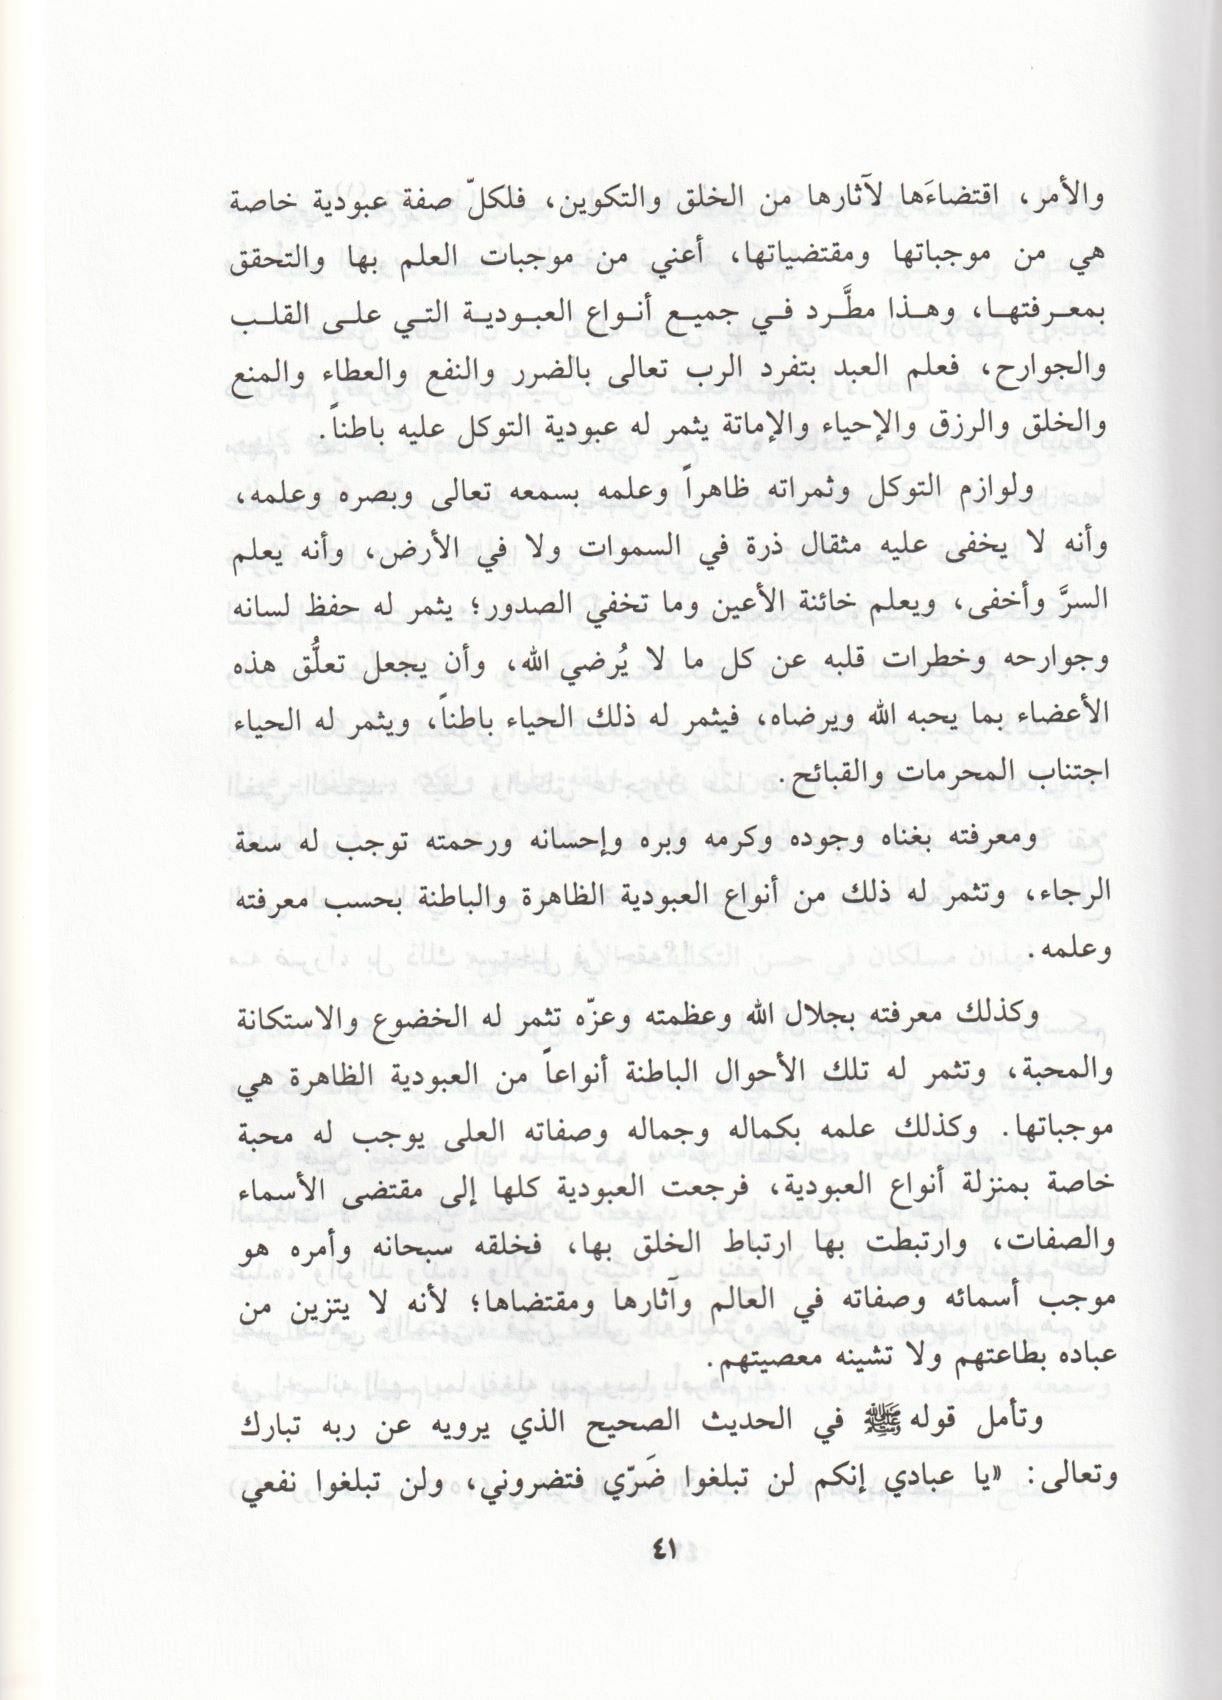 والأمر، اقتضاءَها لآثارها من الخلق والتكوين، فلكلّ صفة عبودية خاصة
هي من موجباتها ومقتضياتها، أعني من موجبات العلم بها والتحقق
بمعـرفتهـا، وهـذا مطَّـرد فـي جميـع أنـواع العبـوديـة التـي علـى القلـب
والجوارح، فعلم العبد بتفرد الرب تعالى بالضرر والنفع والعطاء والمنع
والخلق والرزق والإحياء والإماتة يثمر له عبودية التوكل عليه باطناً.
ولوازم التوكل وثمراته ظاهراً وعلمه بسمعه تعالى وبصره وعلمه،
وأنه لا يخفى عليه مثقال ذرة في السموات ولا في الأرض، وأنه يعلم
السرَّ وأخفى، ويعلم خائنة الأعين وما تخفي الصدور؛ يثمر له حفظ لسانه
وجوارحه وخطرات قلبه عن كل ما لا يُرضي الله، وأن يجعل تعلُّق هذه
الأعضاء بما يحبه الله ويرضاه، فيثمر له ذلك الحياء باطناً، ويثمر له الحياء
اجتناب المحرمات والقبائح.
ومعرفته بغناه وجوده وكرمه وبره وإحسانه ورحمته توجب له سعة
الرجاء، وتثمر له ذلك من أنواع العبودية الظاهرة والباطنة بحسب معرفته
وعلمه.
وكذلك معرفته بجلال الله وعظمته وعزّه تثمر له الخضوع والاستكانة
والمحبة، وتثمر له تلك الأحوال الباطنة أنواعاً من العبودية الظاهرة هي
موجباتها. وكذلك علمه بكماله وجماله وصفاته العلى يوجب له محبة
خاصة بمنزلة أنواع العبودية، فرجعت العبودية كلها إلى مقتضى الأسماء
والصفات، وارتبطت بها ارتباط الخلق بها، فخلقه سبحانه وأمره هو
موجب أسمائه وصفاته في العالم وآثارها ومقتضاها؛ لأنه لا يتزين من
عباده بطاعتهم ولا تشينه معصيتهم.
وتأمل قوله ﷺ في الحديث الصحيح الذي يرويه عن ربه تبارك
وتعالى: «يا عبادي إنكم لن تبلغوا ضَرّي فتضروني، ولن تبلغوا نفعي
٤١